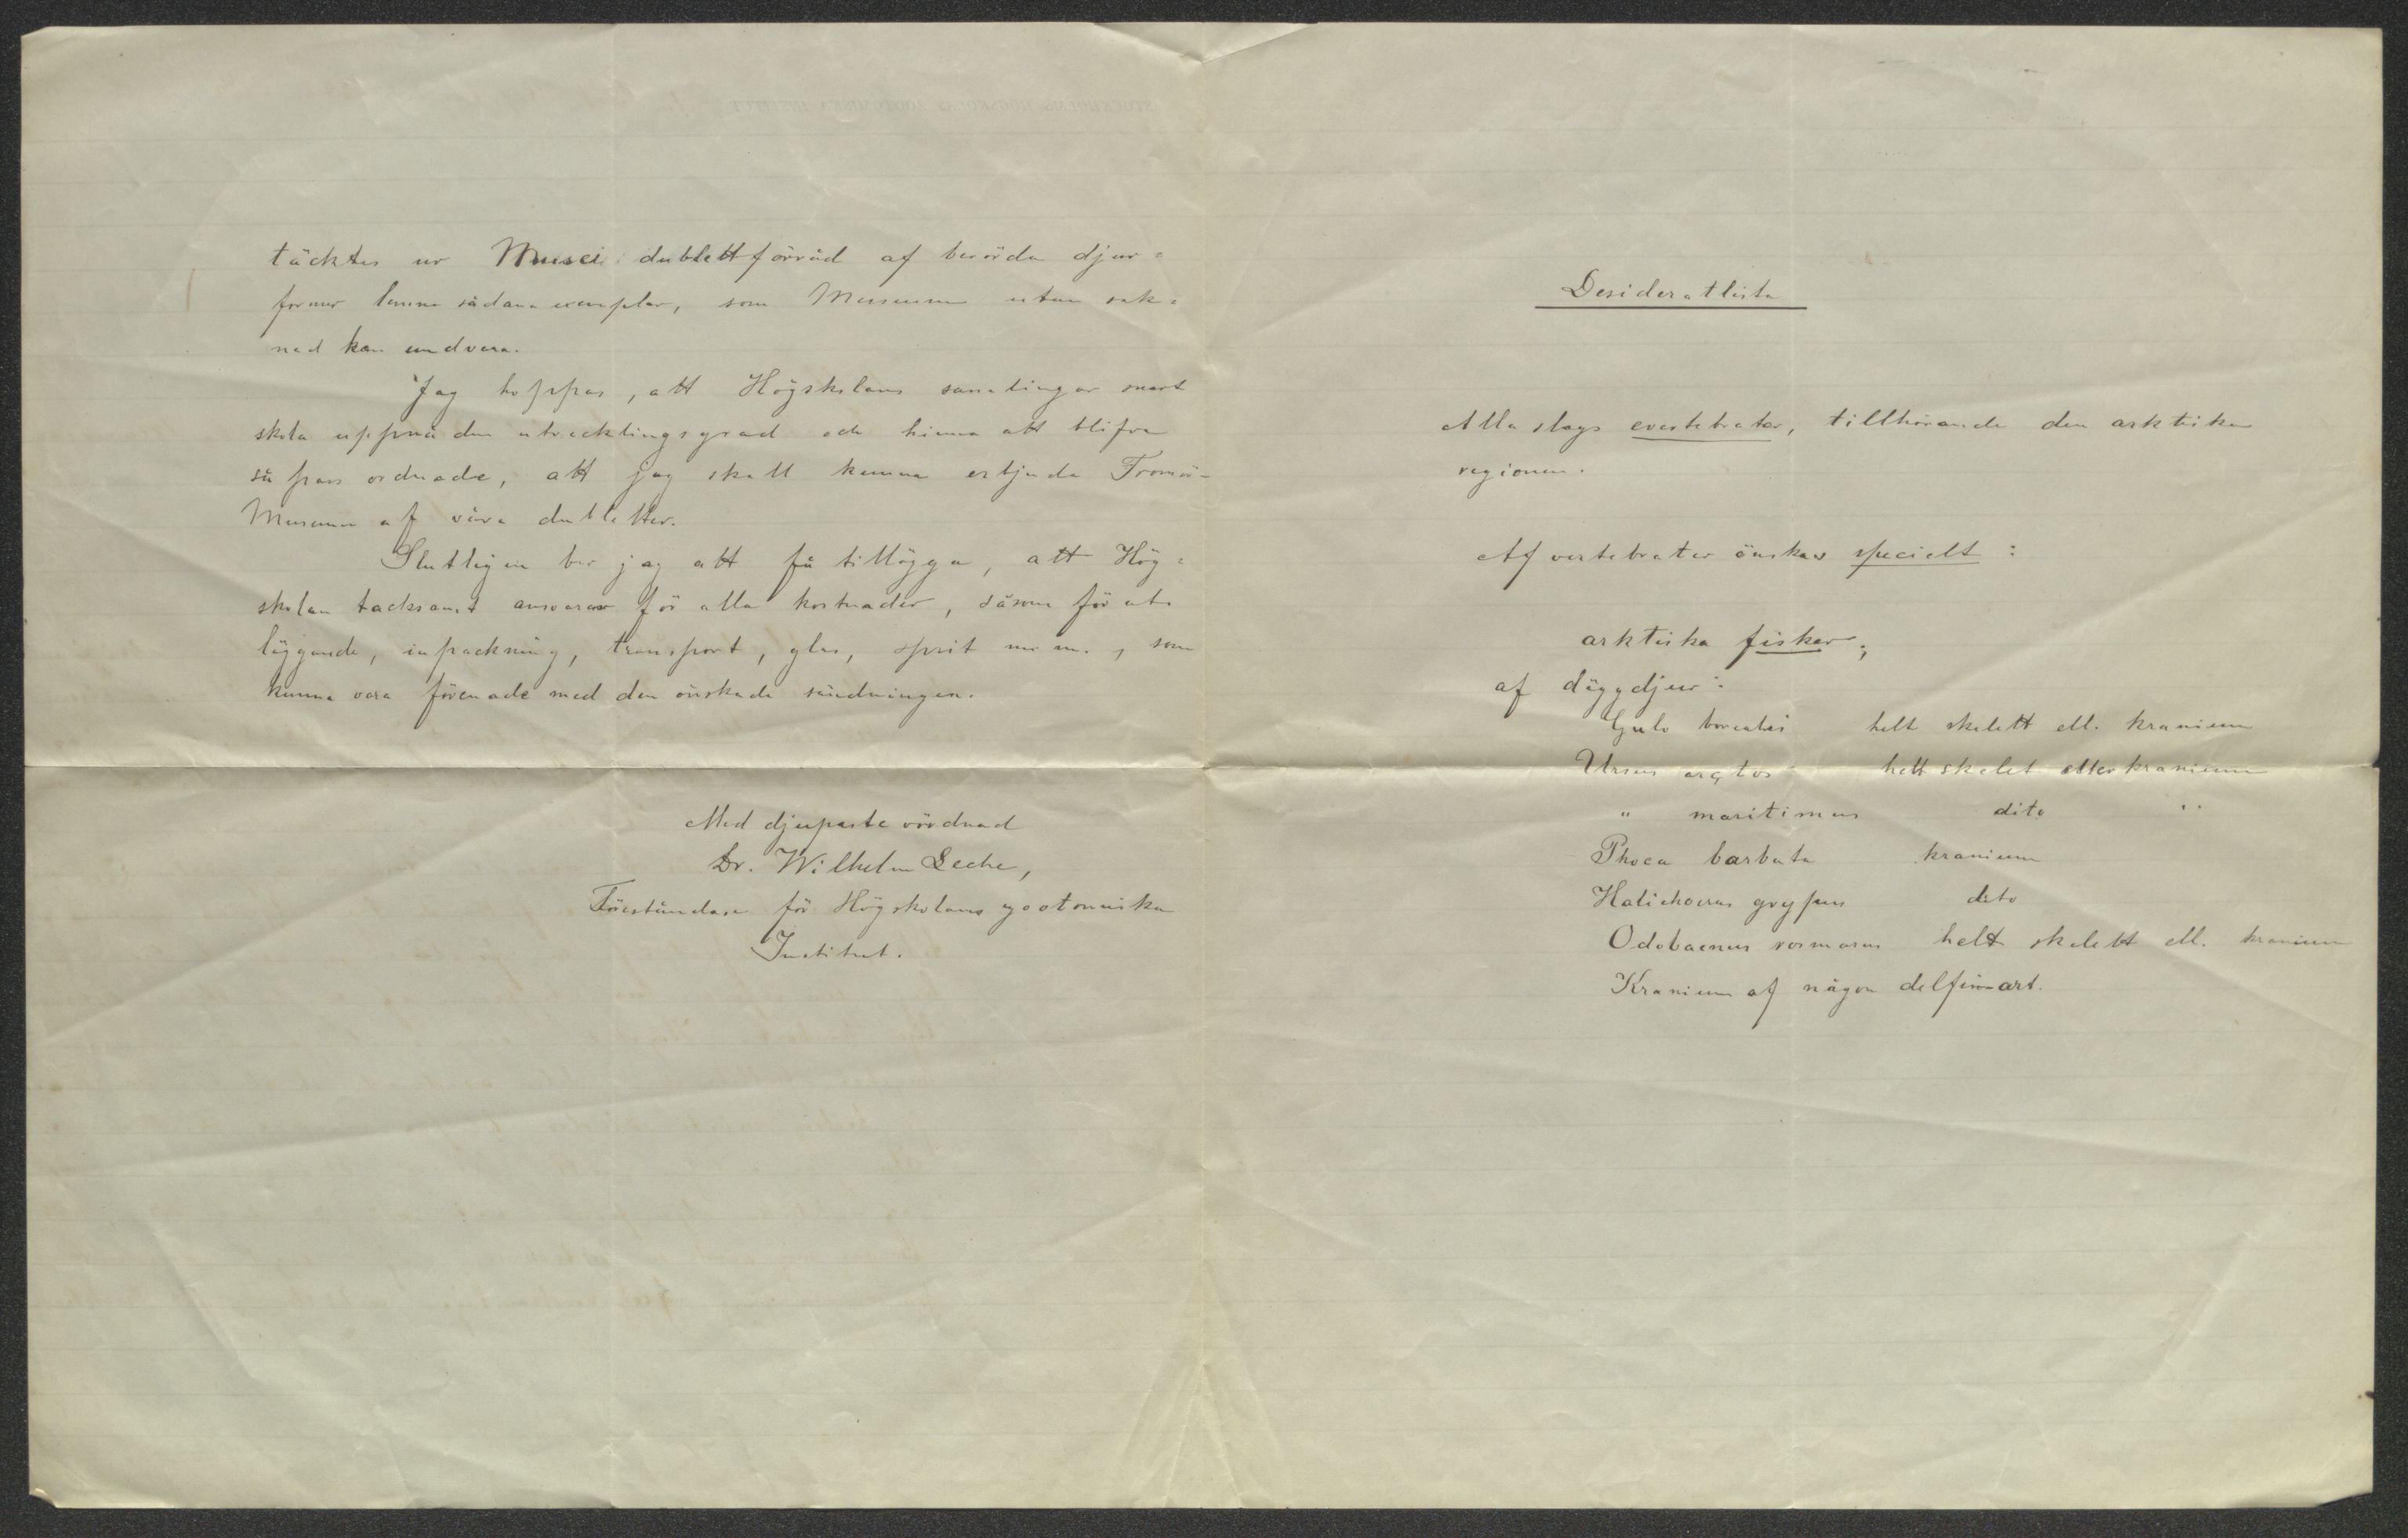 täcktes ur Musei dublettförråd af berörda djur=
former lemna sådana exemplar, som Museum utan sak=
nad kan undvara.
Jag hoppas, att Högskolans samlingar snart
skola uppnå den utvecklingsgrad och hinna att blifva
så pass ordnade, att jag skall kunna erbjuda Tromsö-
Museum af våra dubletter.
Slutligen ber jag att få tillägga, att Hög=
skolan tacksamt ansvarar för alla kostnader, såsom för ut-
läggande, inpackning, transport, glas, sprit m m., som
kunna vara förenade med den önskade sändningen.
Med djupaste vördnad
Dr. Wilhelm Leche,
Föreståndare för Högskolans zootomiska
Institut.
Desideratlista
Alla slags evertebrater, tillhörande den arktiska
regionen.
Af vertebrater önskas specielt:
arktiska fiskar;
af däggdjur:
Gulo borealis helt skelett ell. kranium
Ursus arctos helt skelet eller kranium
" maritimus dito "
Phoca barbata kranium
Halichoerus grypus dito
Odobaenus rosmarus helt skelett ell. kranium
Kranium af någon delfin-art.